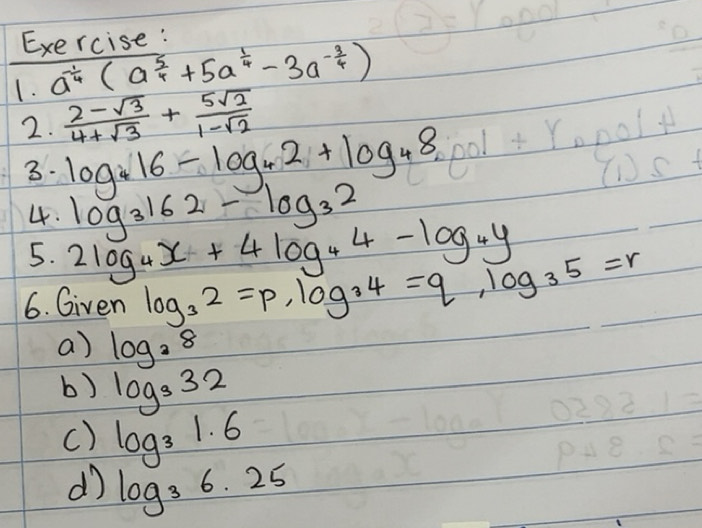 Exercise:
1. a^{-1/4} ( a^{5/4} + 5a^{1/4} - 3a^{-3/4} )
2. \frac{2-√3}{4+√3} + \frac{5√2}{1-√2}
3. log₄16 - log₄2 + log₄8
4. log₃162 - log₃2
5. 2log₄x + 4log₄4 - log₄y
6. Given log₃2 = p, log₃4 = q, log₃5 = r
a) log₃8
b) log₃32
c) log₃ 1.6
d) log₃ 6.25